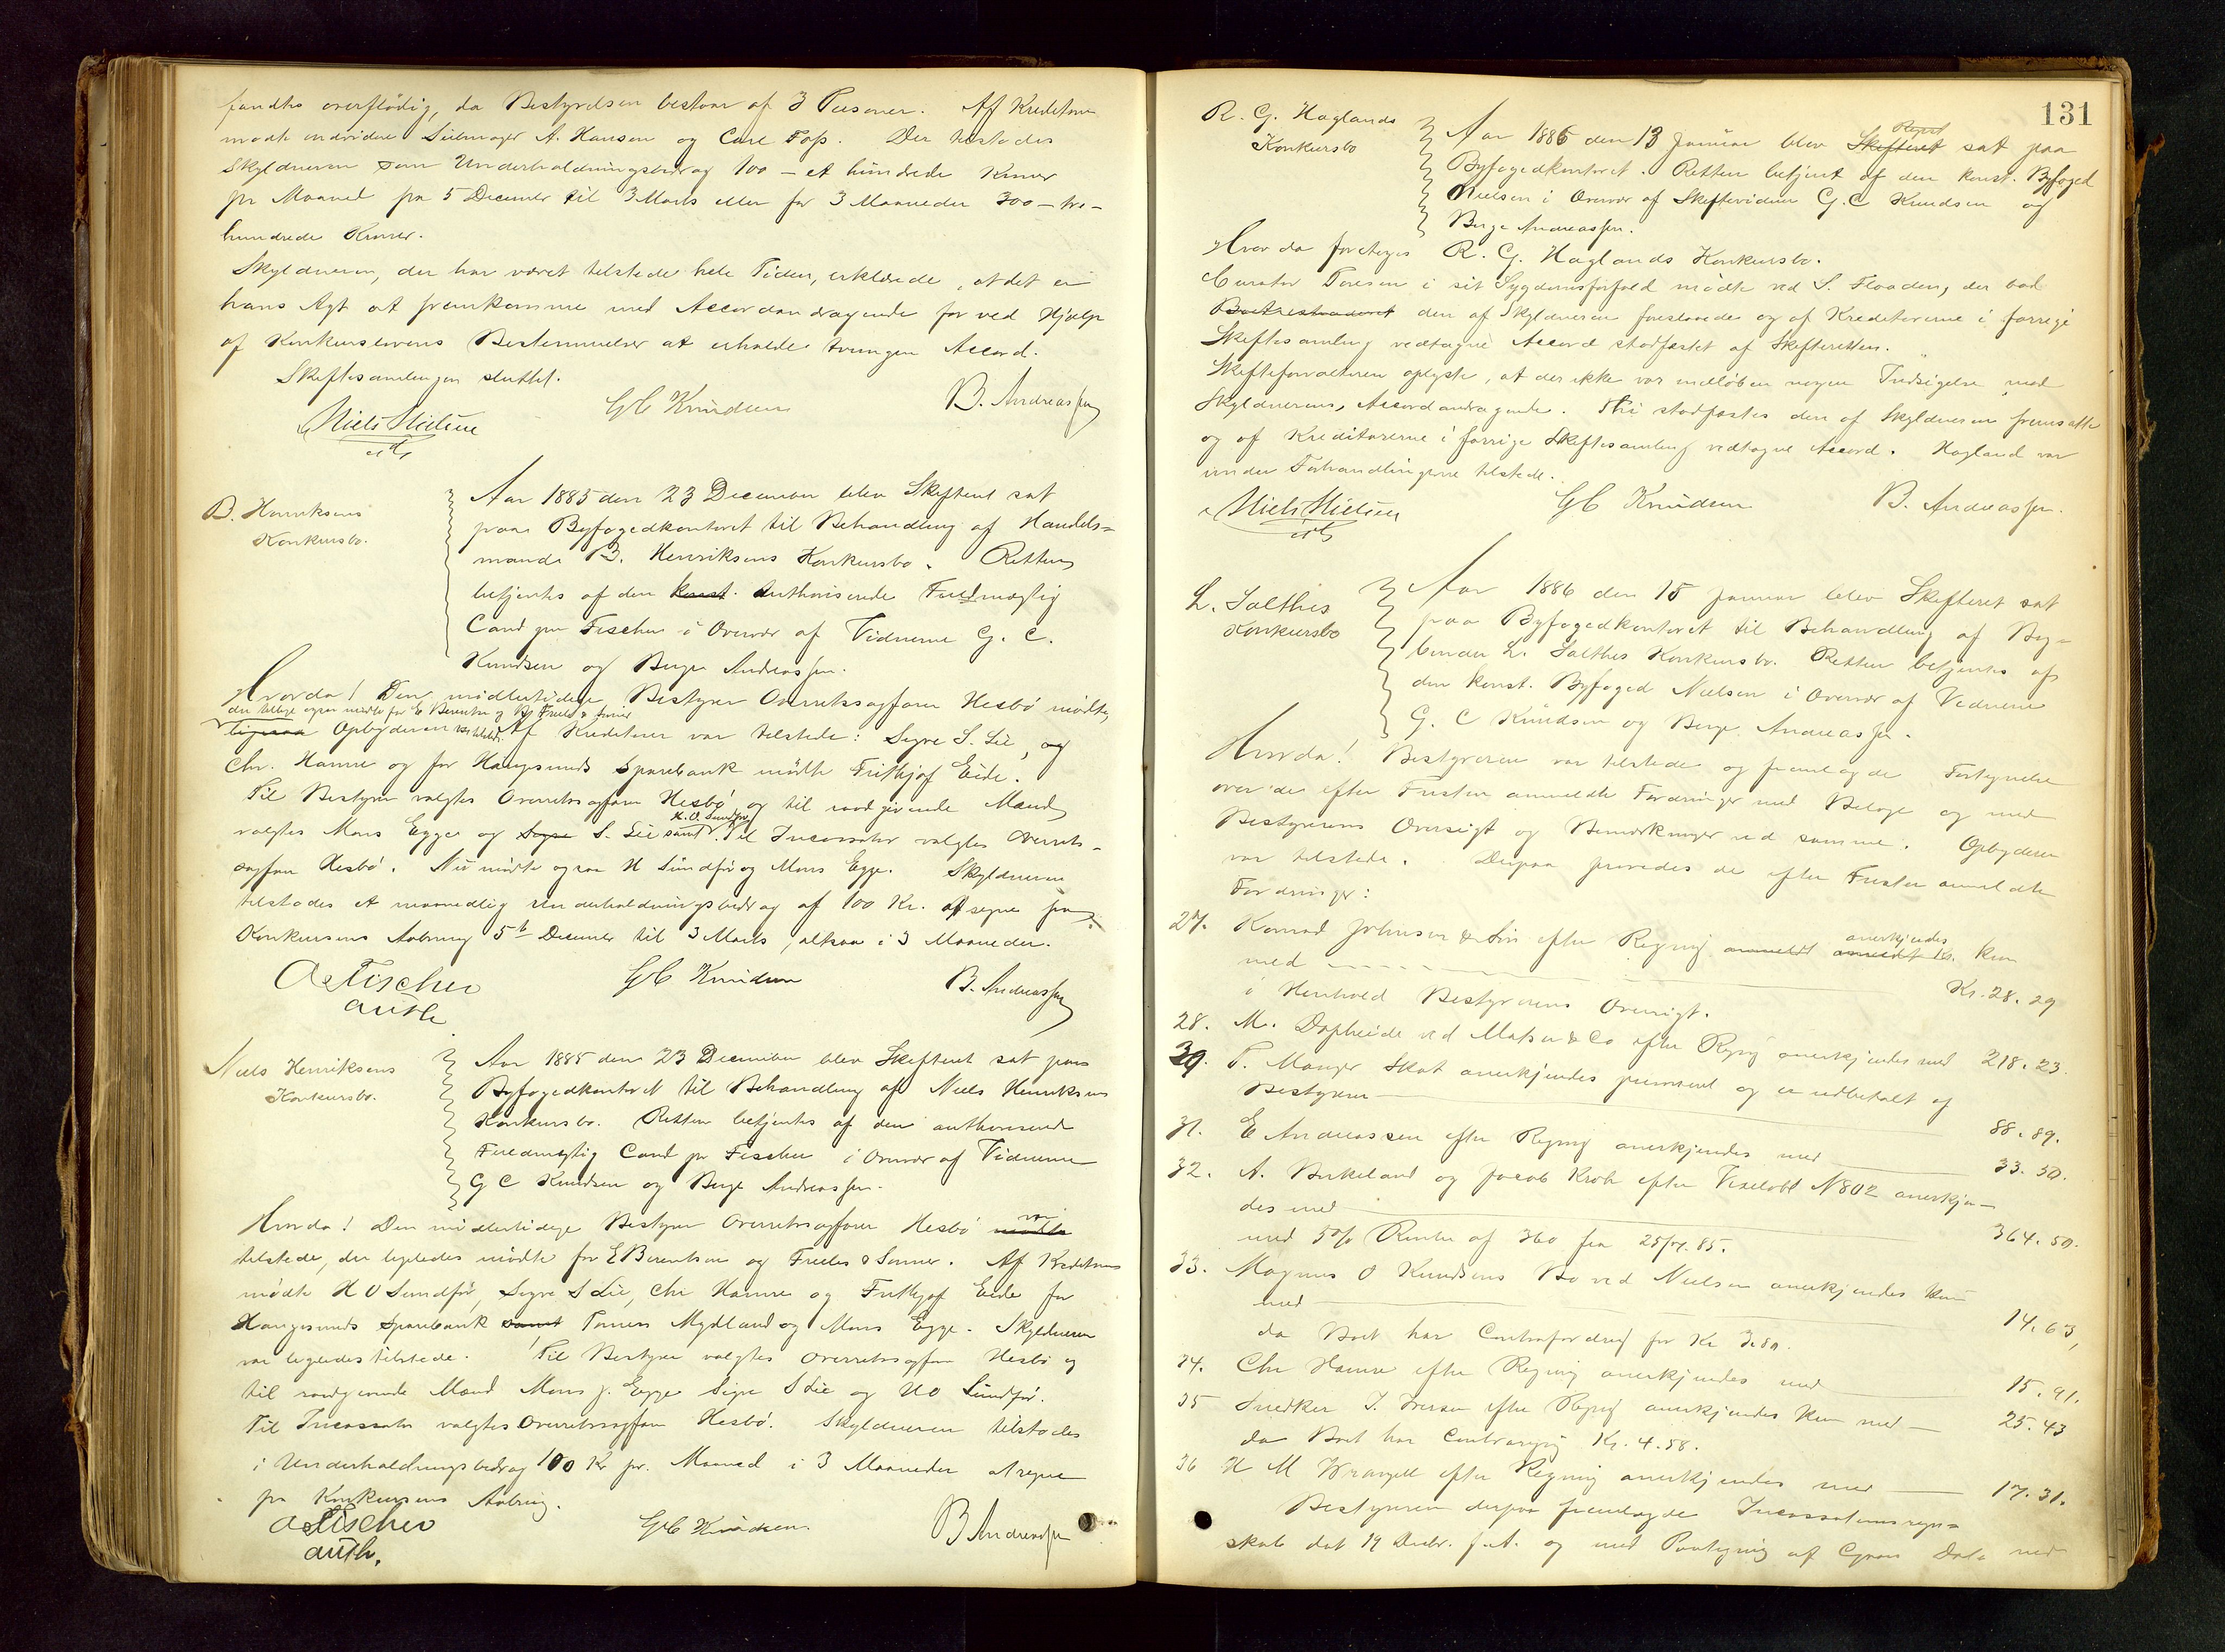 fandtes overflödig, da Bestyrelsen bestaar af 3 Personer. Af Kreditorer
mødte endvidere Seilmager A. Hansen og Carl Foss. Der tilstodes
Skyldneren som Underholdningsbidrag 100 - et hundrede Kroner
pr Maaned fra 5 December til 3 Marts eller for 3 Maaneder 300 - tre -
hundrede Kroner.
Skyldneren, der har været tilstede hele Tiden, erklærede, at det er
hans Agt at fremkomme med Accordandragende for ved Hjælp
af Konkurslovens Bestemmelser at erholde tvungen Accord.
Skiftesamlingen sluttet.
Niels Nielsen GC Knudsen B. Andreassen
cst
B. Henriksens
Konkursbo.
Aar 1885 den 23 December blev Skifteret sat
paa Byfogedkontoret til Behandling af Handels-
mand B. Henriksens Konkursbo. Retten
betjentes af den konst. authoriserede Fuldmægtig
Cand jur Fischer i Overvær af Vidnerne G. C.
Knudsen og Berge Andreassen.
Hvorda! Den midlertidige Bestyrer Overretssagfører Hesbö mödte,
der tillige ogsaa mødte for E Berentsen og
ligesaa Opbyderen var tilstede. Af Kreditorer var tilstede: Sigve S. Lie, og
Chr. Hamre og for Haugesunds Sparebank mödte Frithjof Eide.
Til Bestyrer valgtes Overretssagfører Hesbö og til raadgivende Mænd
H.O. Sundför
valgtes Mons Egge og Sigve S. Lie samt. Til Incassator valgtes Overrets-
sagfører Hesbö. Nu mødte ogsaa H Sundför og Mons Egge. Skyldneren
tilstodes et maanedlig Underholdningsbidrag af 100 Kr. at regne fra
Konkursens Aabning 5te December til 3 Marts, altsaa i 3 Maaneder.
A Fischer GC Knudsen B. Andreassen
auth
Niels Henriksens
Konkursbo.
Aar 1885 den 23 December blev Skifteret sat paa
Byfogedkontoret til Behandling af Niels Henriksens
Konkursbo. Retten betjentes af den authoriserede
Fuldmægtig Cand jur Fischer i Overvær af Vidnerne
G C Knudsen og Berge Andreassen.
Hvorda! Den midlertidige Bestyrer Overretssagfører Hesbö mødte var
tilstede, der ligeledes mödte for E Berentsen og Sønner. Af Kreditorer
mödte H O Sundför, Sigve S Lie, Chr Hamre og Frithjof Eide for
Haugesunds Sparebank samt Tønnes Mydland og Mons Egge. Skyldneren
var ligeledes tilstede. Til Bestyrer valgtes Overretssagfører Hesbö og
til raadgivende Mænd Mons J. Egge Sigve S Lie og H O Sundför.
Til Incassator valgtes Overretssagfører Hesbö. Skyldneren tilstodes
i Underholdningsbidrag 100 Kr pr. Maaned i 3 Maaneder at regne
fra Konkursens Aabning.
A Fischer GC Knudsen. B Andreassen
auth.
131
R. G. Haglands
Konkursbo
Aar 1886 den 13 Januar blev Skifteret sat paa
Byfogedkontoret. Retten betjent af den konst. Byfoged
Nielsen i Overvær af Skiftevidner G. C Knudsen og
Berge Andreassen.
Hvorda foretoges R. G. Haglands Konkursbo.
Curator Toresen i sit Sygdomsforfald mödte ved S. Flaaden, der bad
den af Skyldneren foreslaaede og af Kreditorerne i forrige
Skiftesamling vedtagne Accord stadfæstet af Skifteretten.
Skifteforvalteren oplyste, at der ikke var indlöben nogen Indsigelse mod
Skyldnerens Accordandragende. Thi stadfæstes den af Skyldneren fremsatte
og af Kreditorerne i forrige Skiftesamling vedtagne Accord. Hagland var
under Forhandlingerne tilstede.
Niels Nielsen GC Knudsen B. Andreassen.
cst
L. Salthes
Konkursbo
Aar 1886 den 15 Januar blev Skifteret sat
paa Byfogedkontoret til Behandling af Bog-
binder L. Salthes Konkursbo. Retten betjentes af
den konst. Byfoged Nielsen i Overvær af Vidnerne
G. C Knudsen og Berge Andreassen.
Hvorda! Bestyreren var tilstede og fremlagde Fortegnelse
over de efter Fristen anmeldte Fordringer med Bilage og med
Bestyrerens Oversigt og Bemærkninger ved samme. Opbyderen
var tilstede. Derpaa prövedes de efter Fristen anmeldte
Fordringer:
27. Konrad Johnsen & Sön efter Regning anmeldt anmeldt Kr. anerkjendes kun
med Kr. 28. 29
i Henhold Bestyrerens Oversigt.
28. M. ved & Co efter Regning anerkjendes med 218. 23.
29. T. Manger Skat anerkjendes og er udbetalt af
Bestyrer 88. 89.
31. E Andreassen efter Regning anerkjendes med 33. 50.
32. A. Birkeland og Jacob Kroh efter N 802 anerkjen-
des med 364. 50.
med 5% Renter af 360 fra
33. Magnus O Knudsens Bo ved Nielsen anerkjendes kun
med 14. 63,
da Boet har Contrafordring for Kr 3.80.
34. Chr Hamre efter Regning anerkjendes med 15. 91.
35 Snedker I. Iversen efter Regning anerkjendes kun med 25. 43
da Boet har Kr. 4.58.
36 H M Wrangell efter Regning anerkjendes med 17. 31.
Bestyreren derpaa fremlagde Incassatorens regn-
skab dat 19 Decbr. f. A. og med Paategning af Dale med